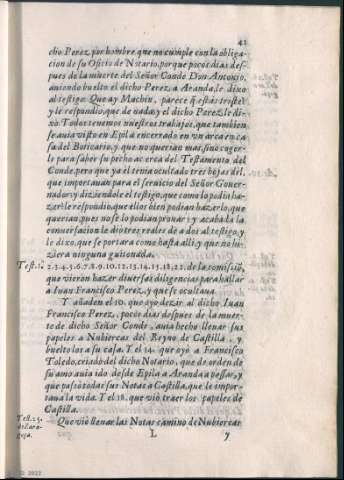 42
cho Perez, por hombre que no cumple con la obliga-
cion de su Oficio de Notario, porque pocos dias des-
pues de la muerte del Señor Conde Don Antonio,
auiendo buelto el dicho Perez a Aranda, le dixo
al testigo: Que ay Machin, parece q̃ estàs triste?
y le respondio, que de nada; y el dicho Perez le di-
xo: Todos tenemos nuestros trabajos, que tambien
se auia visto en Epila encerrado en vn arca en ca-
sa del Boticario, y que no querian mas, sino coger-
le para saber su pecho acerca del Testamento del
Conde, pero que ya el tenia ocultado tres hojas del,
que importauan para el seruicio del Señor Gouer-
nador: y diziendole el testigo, que como lo podia ha-
zer? le respondio, que ellos bien podian hazerlo, que
querian, pues no se lo podian prouar: y acabada la
conuersacion le dio tres reales de a dos al testigo, y
le dixo, que se portara como hasta alli, y que no hi-
ziera ninguna guitonada.
Test. 1. 2. 3. 4. 5. 6. 7. 8. 9. 10. 12. 13. 14. 15. 18. 22. de la comissiõ,
que vieron hazer diuersas diligencias para hallar
a Iuan Francisco Perez, y que se ocultaua.
Y añaden el 10. que oyò dezir al dicho Iuan
Francisco Perez, pocos dias despues de la muer-
te de dicho Señor Conde, auia hecho lleuar sus
papeles a Nubiercas del Reyno de Castilla, y
bueltolos a su casa. Y el 14. que oyò a Francisco
Toledo, criado del dicho Notario, que de orden de
su amo auia ido desde Epila a Aranda a pessar, y
que passò todas sus Notas a Castilla, que le impor-
taua la vida. Y el 18. que viò traer los papeles de
Castilla.
Test. 25.
de Çara-
goça.
Que viò lleuar las Notas camino de Nubiercas
L y